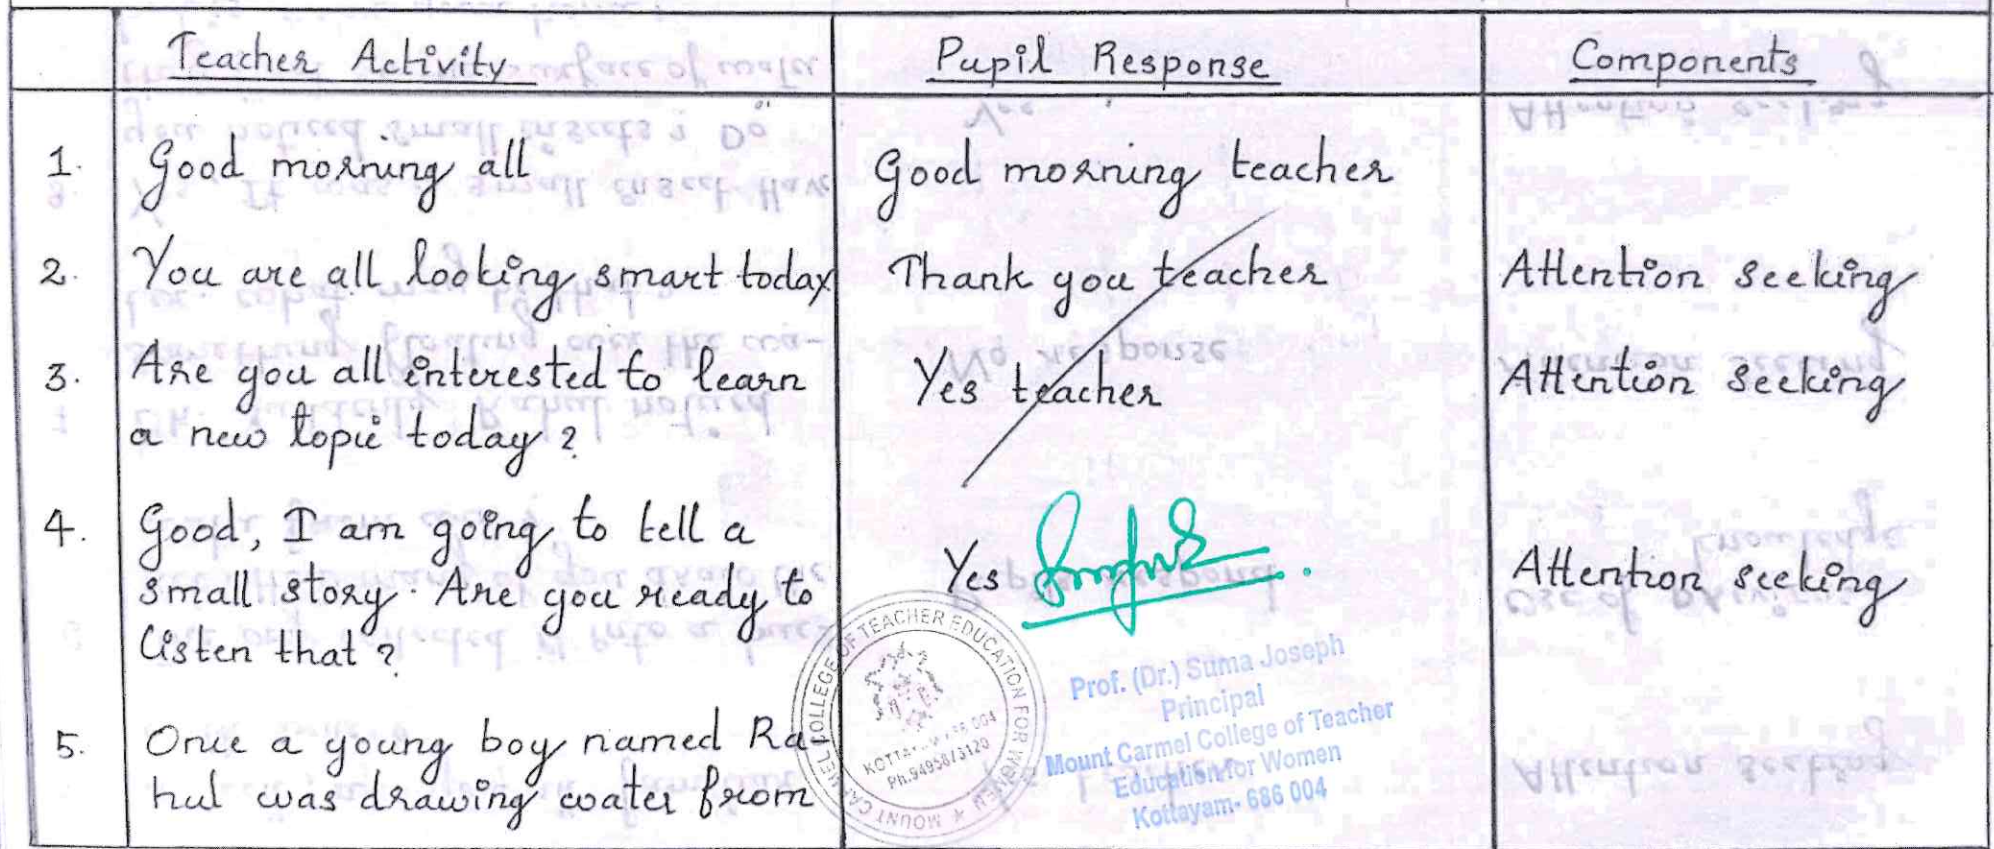 Teacher Activity Pupil Response Components
1. Good morning all Good morning teacher
2. You are all looking smart today Thank you teacher Attention seeking
3. Are you all interested to learn Yes teacher Attention seeking
a new topic today?
4. Good, I am going to tell a Yes Attention seeking
small story. Are you ready to
listen that?
5. Once a young boy named Ra-
hul was drawing water from
MOUNT CARMEL COLLEGE OF TEACHER EDUCATION FOR WOMEN
Prof. (Dr.) Suma Joseph
Principal
Mount Carmel College of Teacher
Education for Women
Kottayam- 686 004